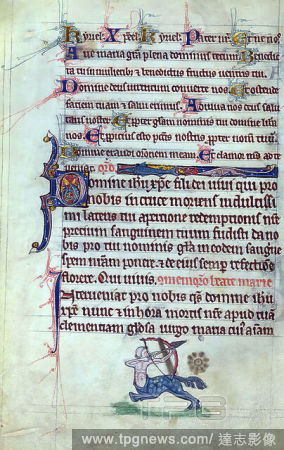 Kyriel. Xpiel. Kyriel. Pater nr. Et ne nos
Aue maria gra plena dominus tecum. Benedic
ta tu in mulieribus et benedictus fructus uentris tui.
Domine deus uirtutum conuerte nos. Et ostende
faciem tuam et salui erimus. Adiuua nos deus salu
taris noster. Et propter gloriam nominis tui domine libera
nos. Et propicius esto peccatis nostris propter nomen tuum.
Domine exaudi orationem meam. Et clamor meus ad te
Domine ihu xpe fili dei uiui qui pro
nobis in cruce moriens
lateris tui apertione redemptionis nre
precium sanguinem tuum fudisti da no
bis pro tui nominis gloria in eodem sangui
spem nram ponere et de eius semper refectione
florere. Qui uiuis. memoria beate marie
Interueniat pro nobis qs domine ihu
xpe nunc et in hora mortis nre apud tuam
clementiam gloriosa uirgo maria cuius animam
TPG
www.tpgnews.com/達志影像